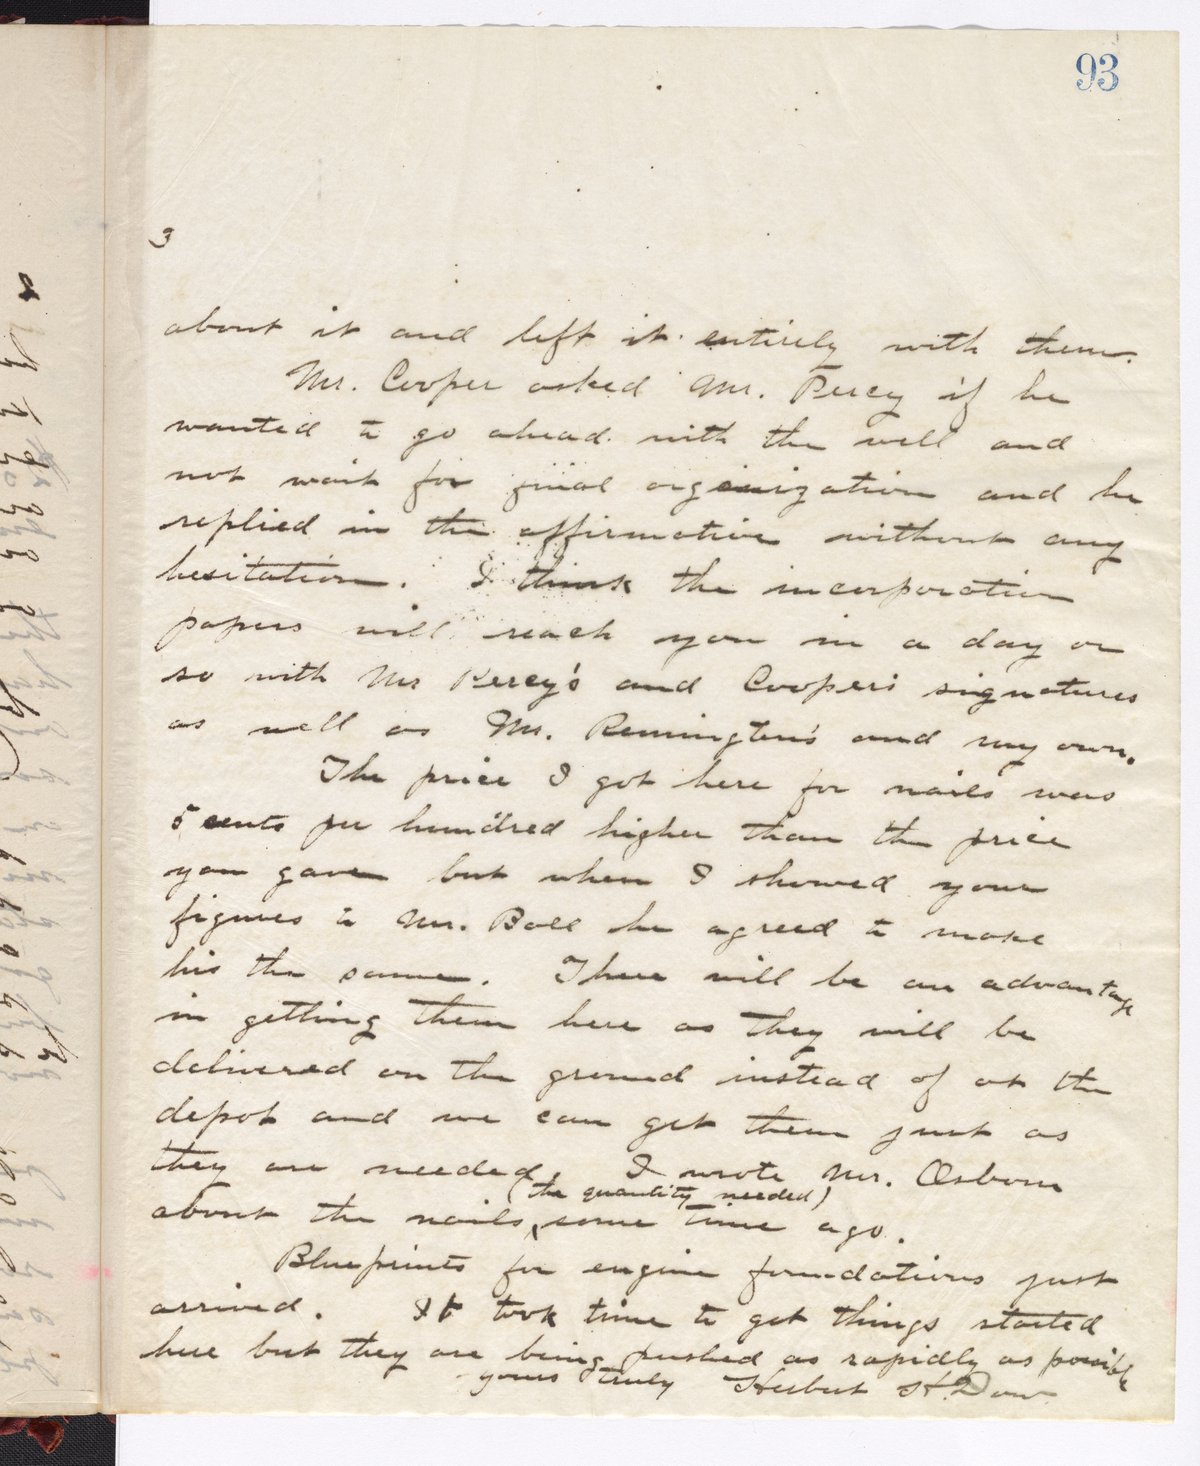 93
3
about it and left it entirely with them.
Mr. Cooper asked Mr. Percy if he
wanted to go ahead with the well and
not wait for final orginization and he
replied in the affirmative without any
hesitation. I think the incorporation
papers will reach you in a day or
so with Mr Percy's and Cooper's signatures
as well as Mr. Remington's and my own.
The price I got here for nails was
5 cents per hundred higher than the price
you gave but when I showed your
figures to Mr. Ball he agreed to make
his the same. There will be an advantage
in getting them here as they will be
delivered on the ground instead of at the
depot and we can get them just as
they are needed. I wrote Mr. Osborn
(the quantity needed)
about the nails, some time ago.
Blueprints for engine foundations just
arrived. It took time to get things started
here but they are being pushed as rapidly as possible
yours truly Herbert H. Dow